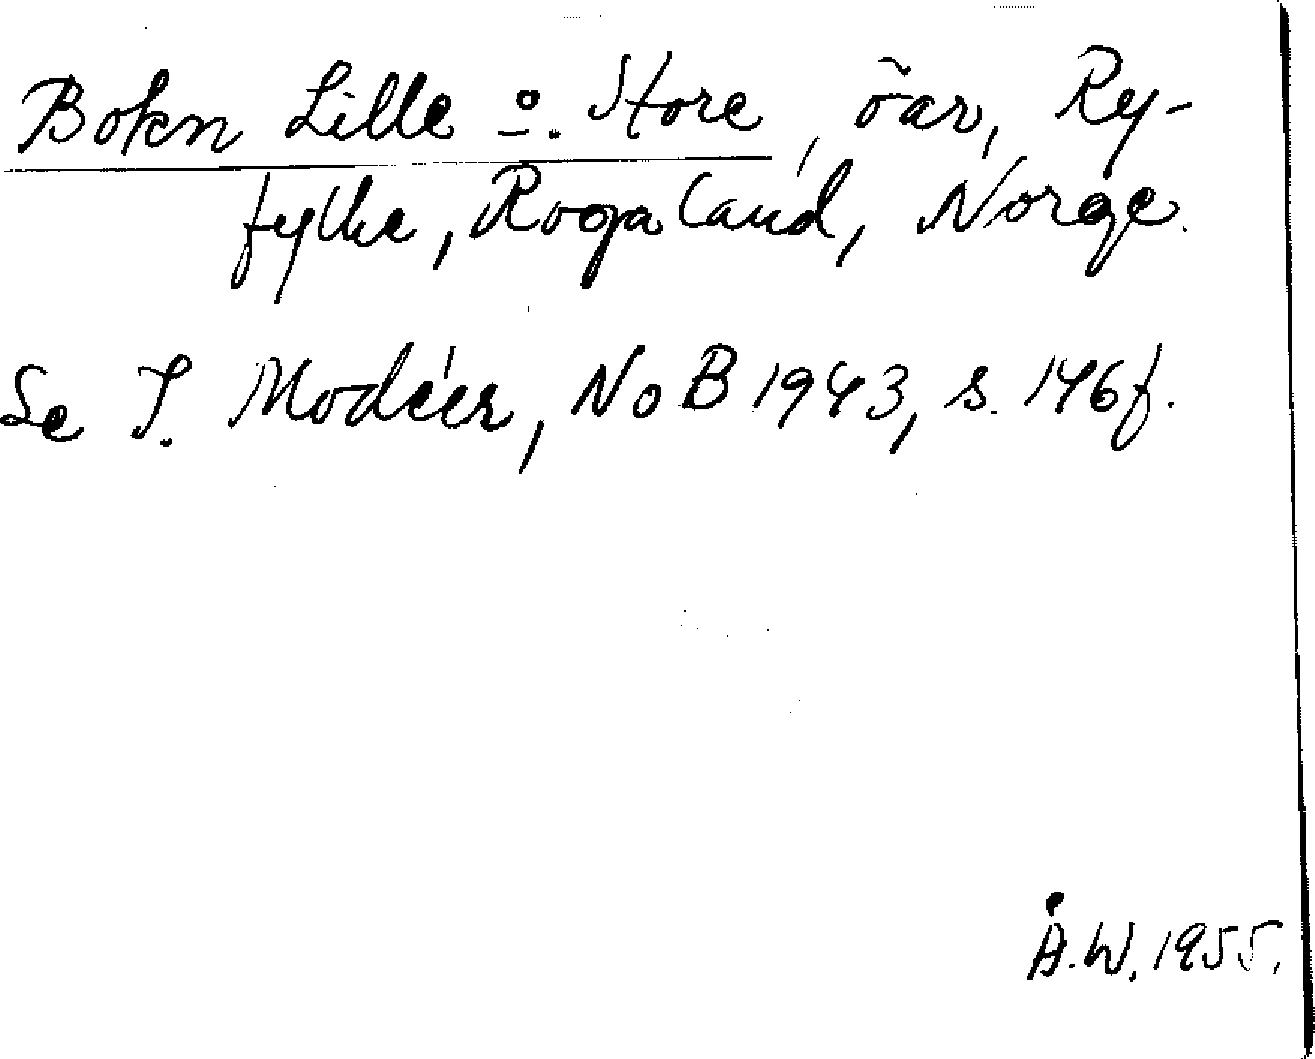 Bokn Lille o. Store, öar, Ry-
fylke, Rogaland, Norge.
Se I. Modéer, NoB 1943, s. 146f.
Å.W. 1955.